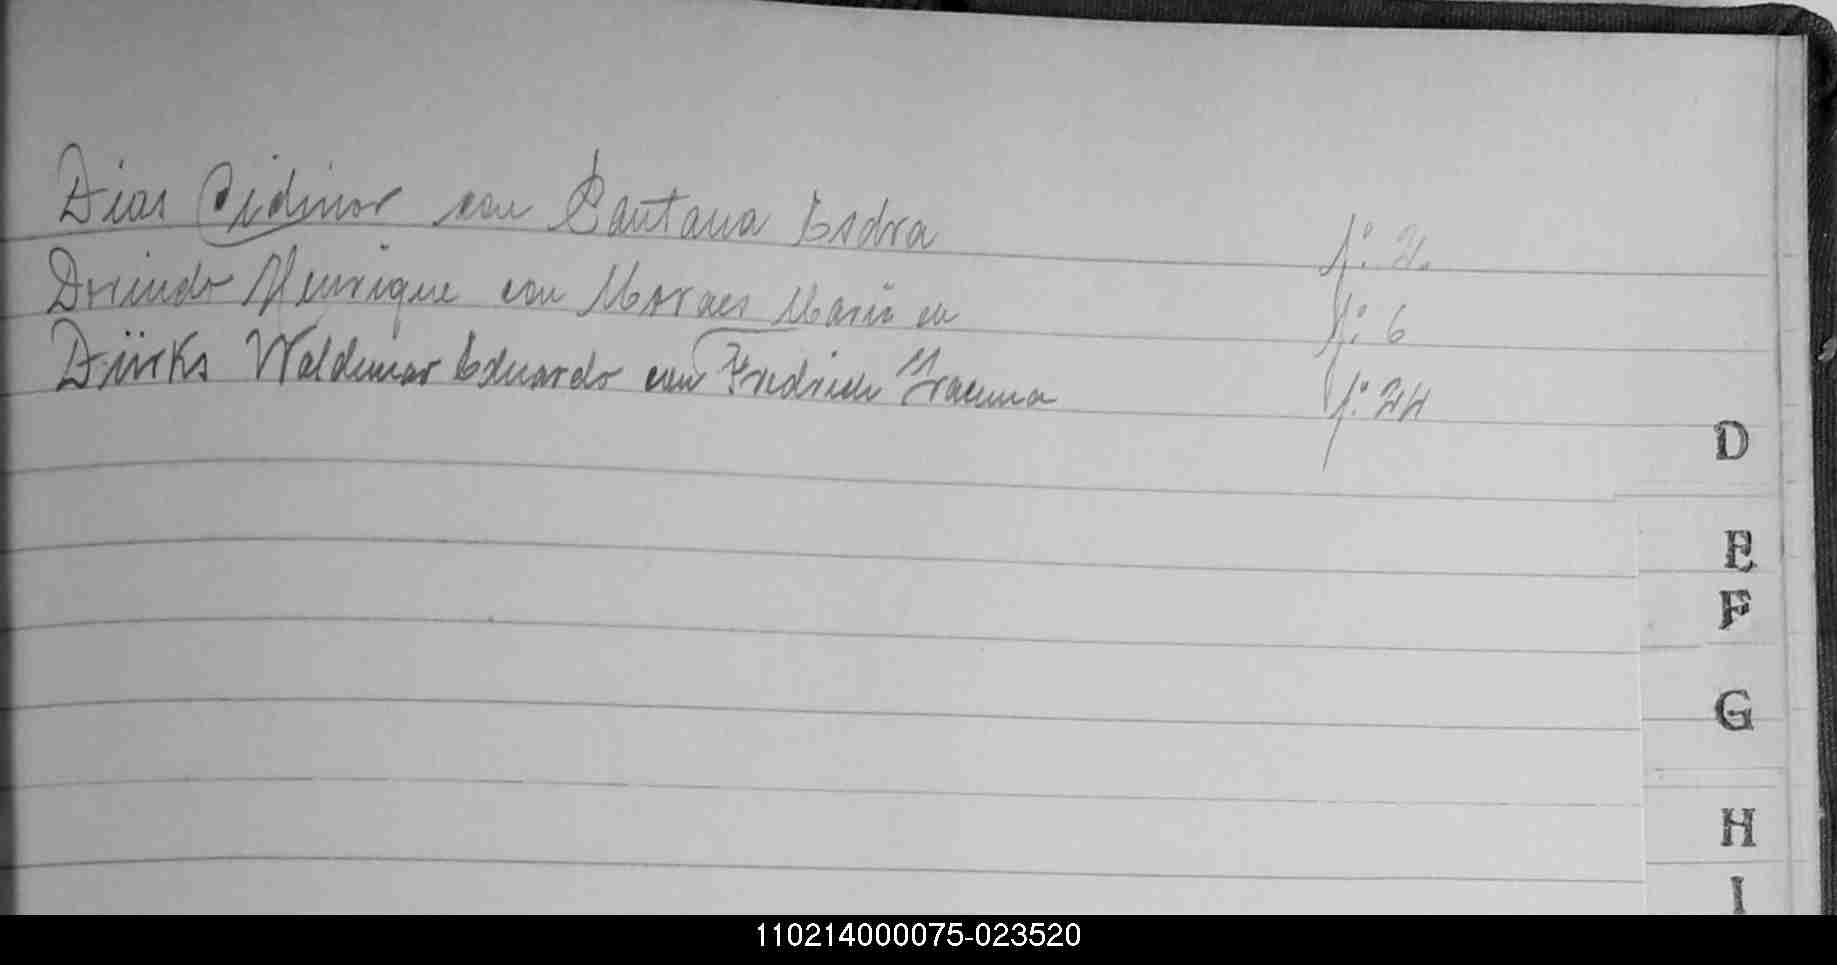 Dias Cidinor com Santana Esdra f: 2.
Dorindo Henrique com Moraes Maria de f: 6
Dürks Waldemar Eduardo com Fredrich Iracema f: 24
D
E
F
G
H
I
110214000075-023520